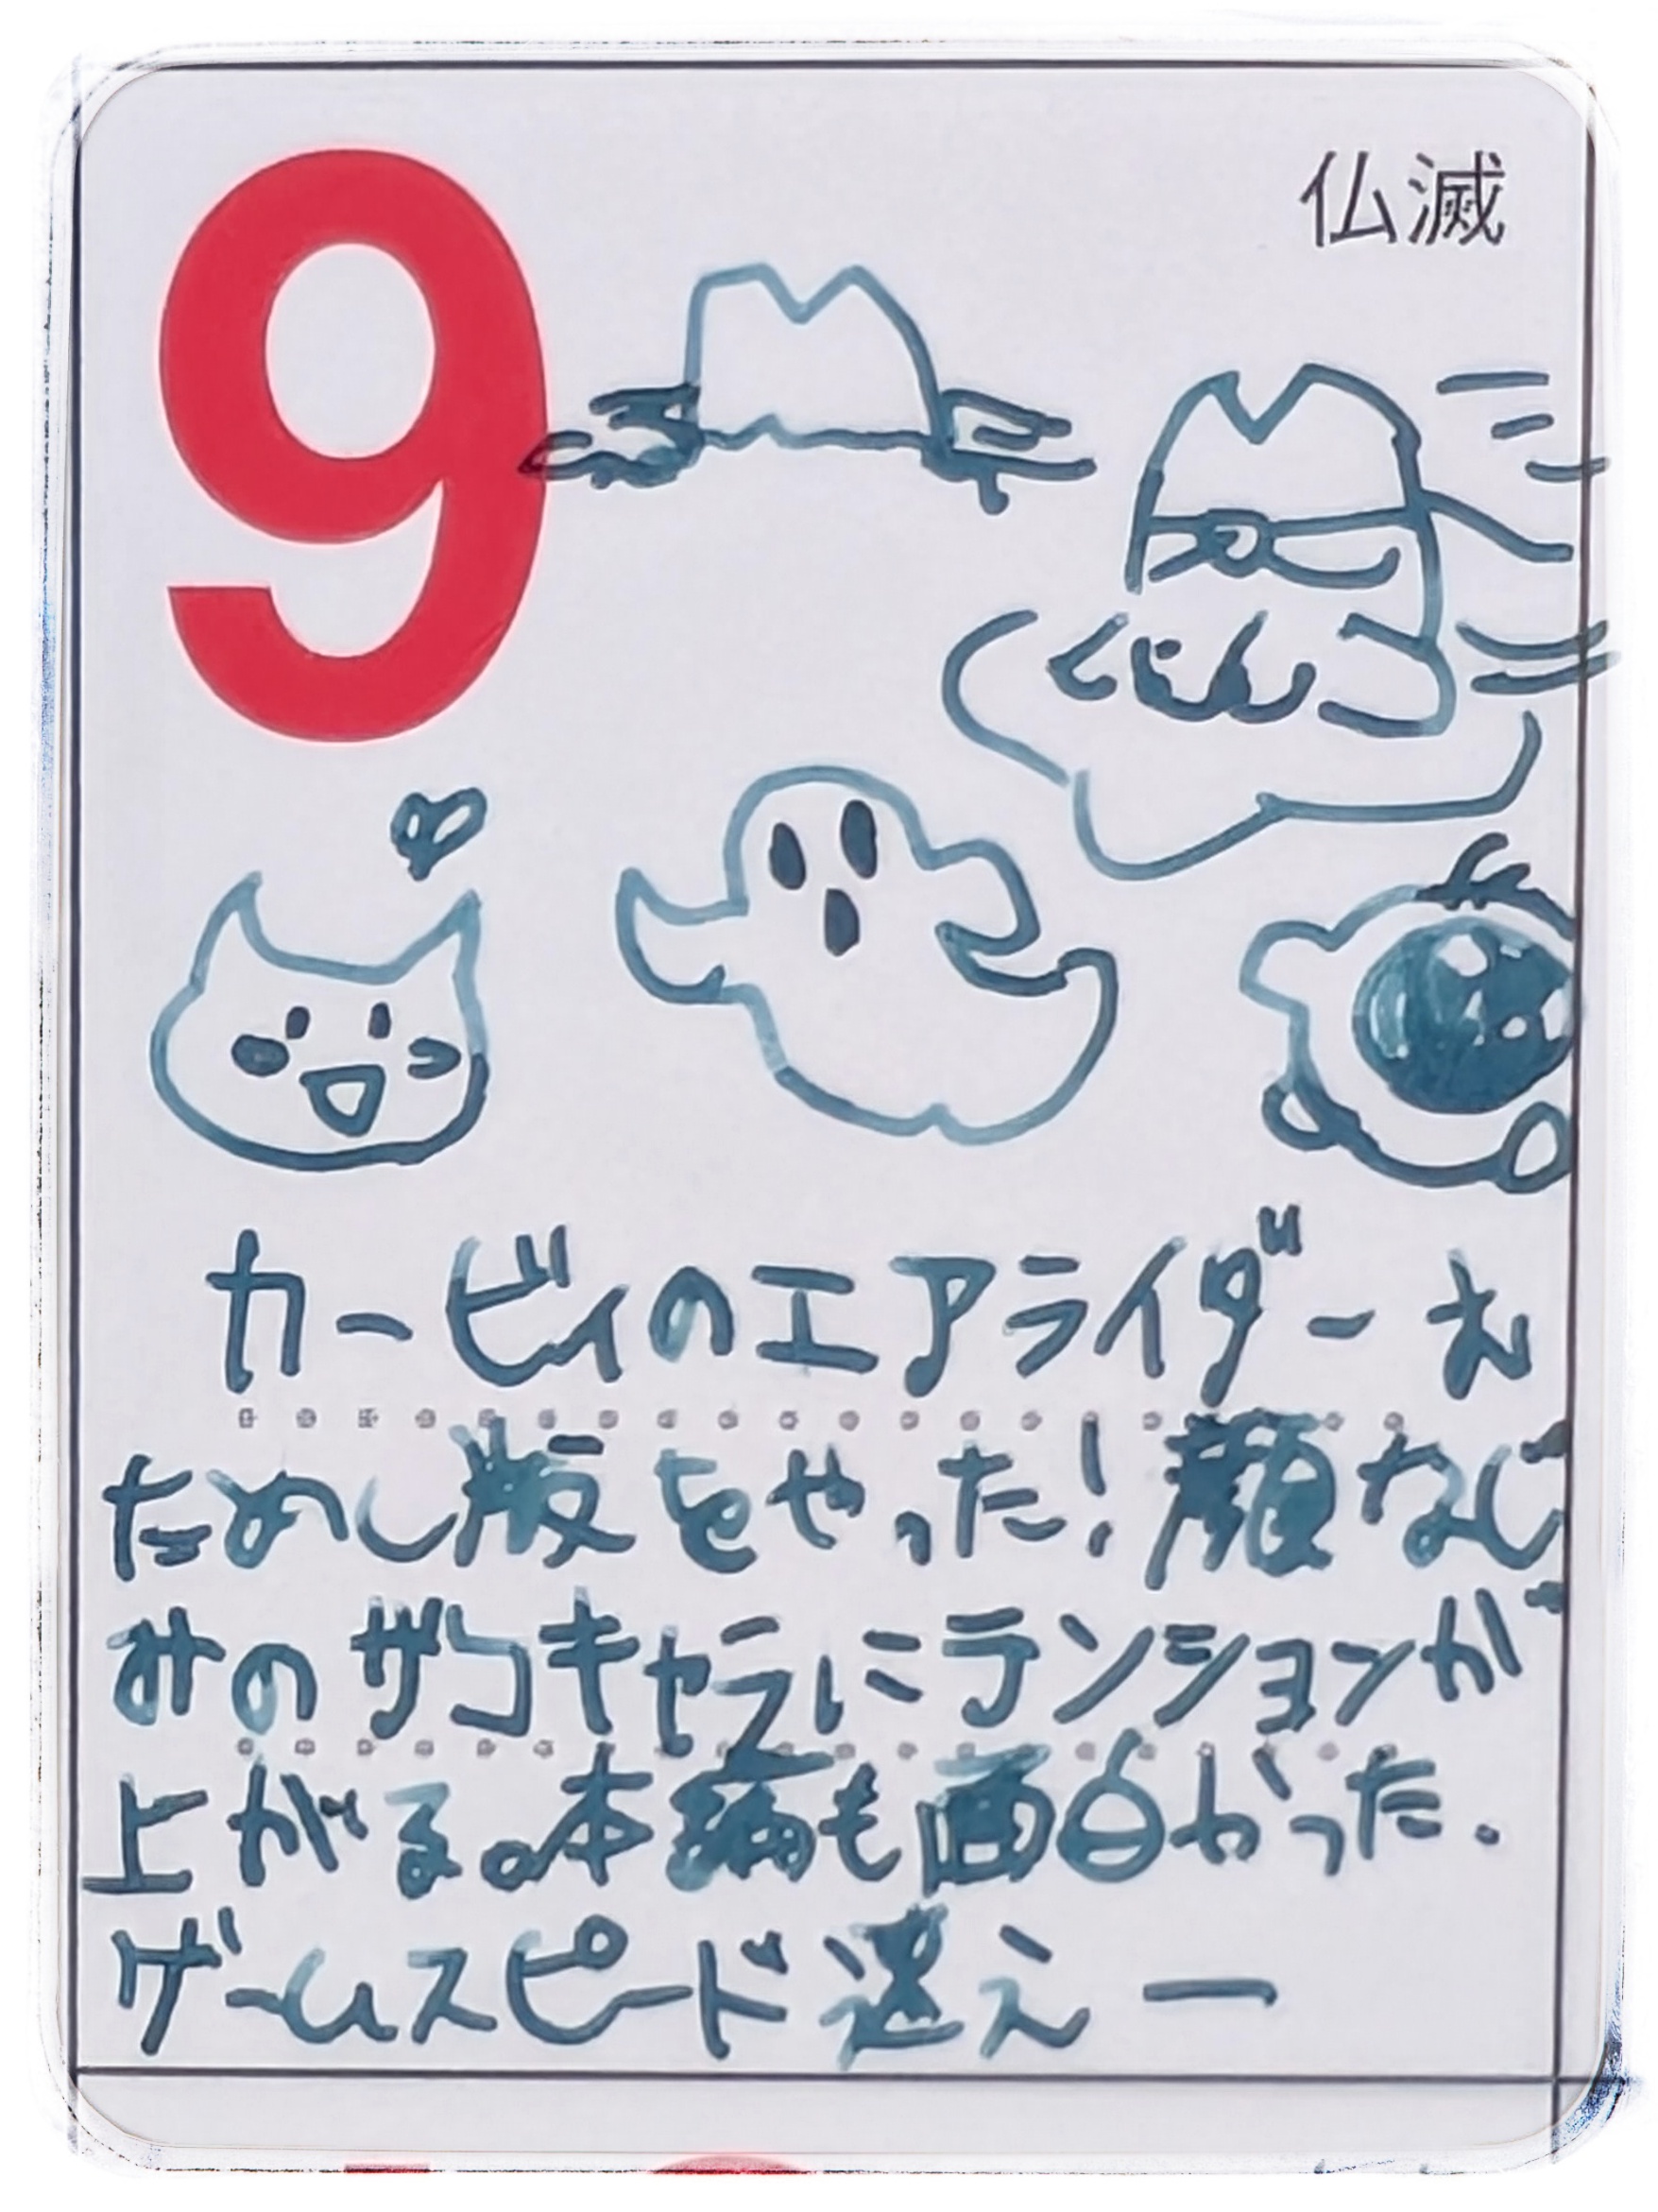 9
仏滅
カービィのエアライダーお
ためし版をやった！顔なじ
みのザコキャラにテンションが
上がる。本編も面白かった.
ゲームスピード速えー